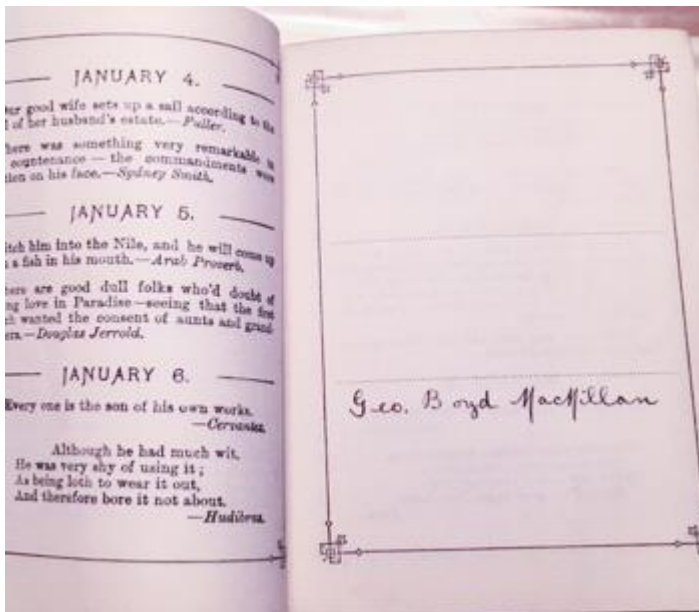 JANUARY 4.
our good wife sets up a sail according to the
of her husband's estate.—Fuller.
here was something very remarkable in
countenance — the commandments were
tten on his face.—Sydney Smith.
JANUARY 5.
itch him into the Nile, and he will come up
a fish in his mouth.—Arab Proverb.
here are good dull folks who'd doubt of
ng love in Paradise—seeing that the first
ch wanted the consent of aunts and grand-
ers.—Douglas Jerrold.
JANUARY 6.
Every one is the son of his own works.
—Cervantes.
Although he had much wit,
He was very shy of using it;
As being loth to wear it out,
And therefore bore it not about.
—Hudibras.
Geo. Boyd MacMillan